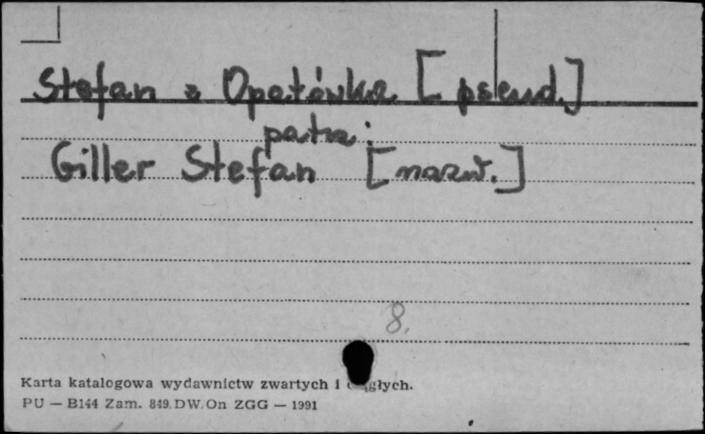 Stefan z Opatówka [pseud.]
patrz:
Giller Stefan [nazw.]
8.
Karta katalogowa wydawnictw zwartych i ciągłych.
PU — B144 Zam. 849. DW. On ZGG — 1991